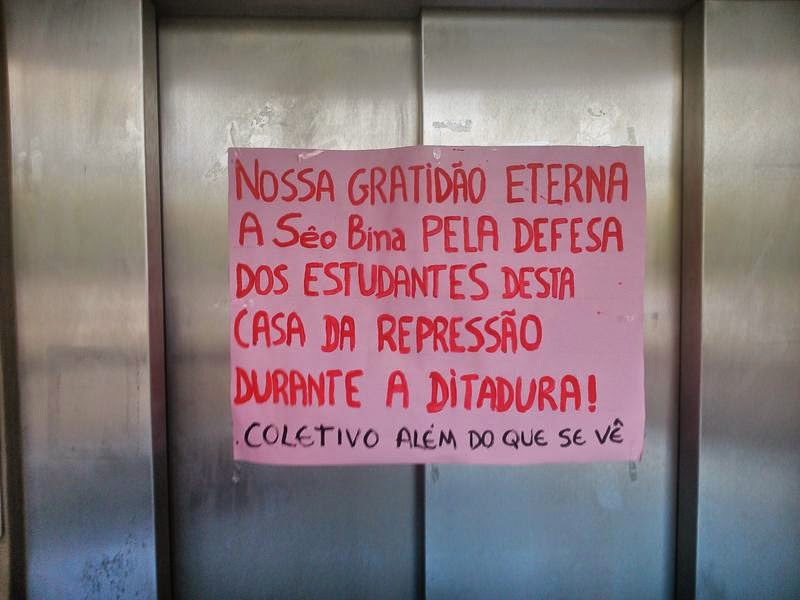 NOSSA GRATIDÃO ETERNA
A Sêo Bina PELA DEFESA
DOS ESTUDANTES DESTA
CASA DA REPRESSÃO
DURANTE A DITADURA!
.COLETIVO ALÉM DO QUE SE VÊ